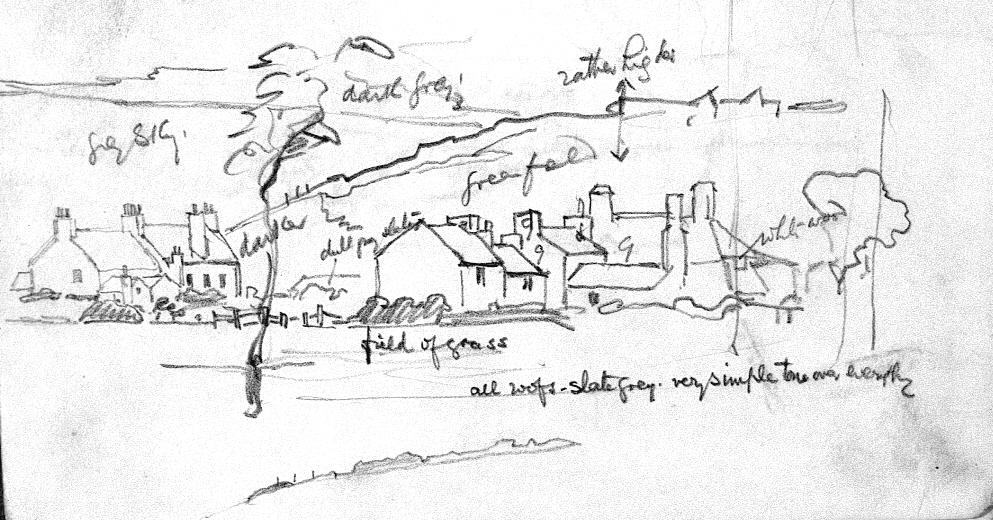 rather higher
dark grey
grey sky.
green field
darker
dull
white
g
g
g
field of grass
all roofs - slate grey. very simple tone over everything